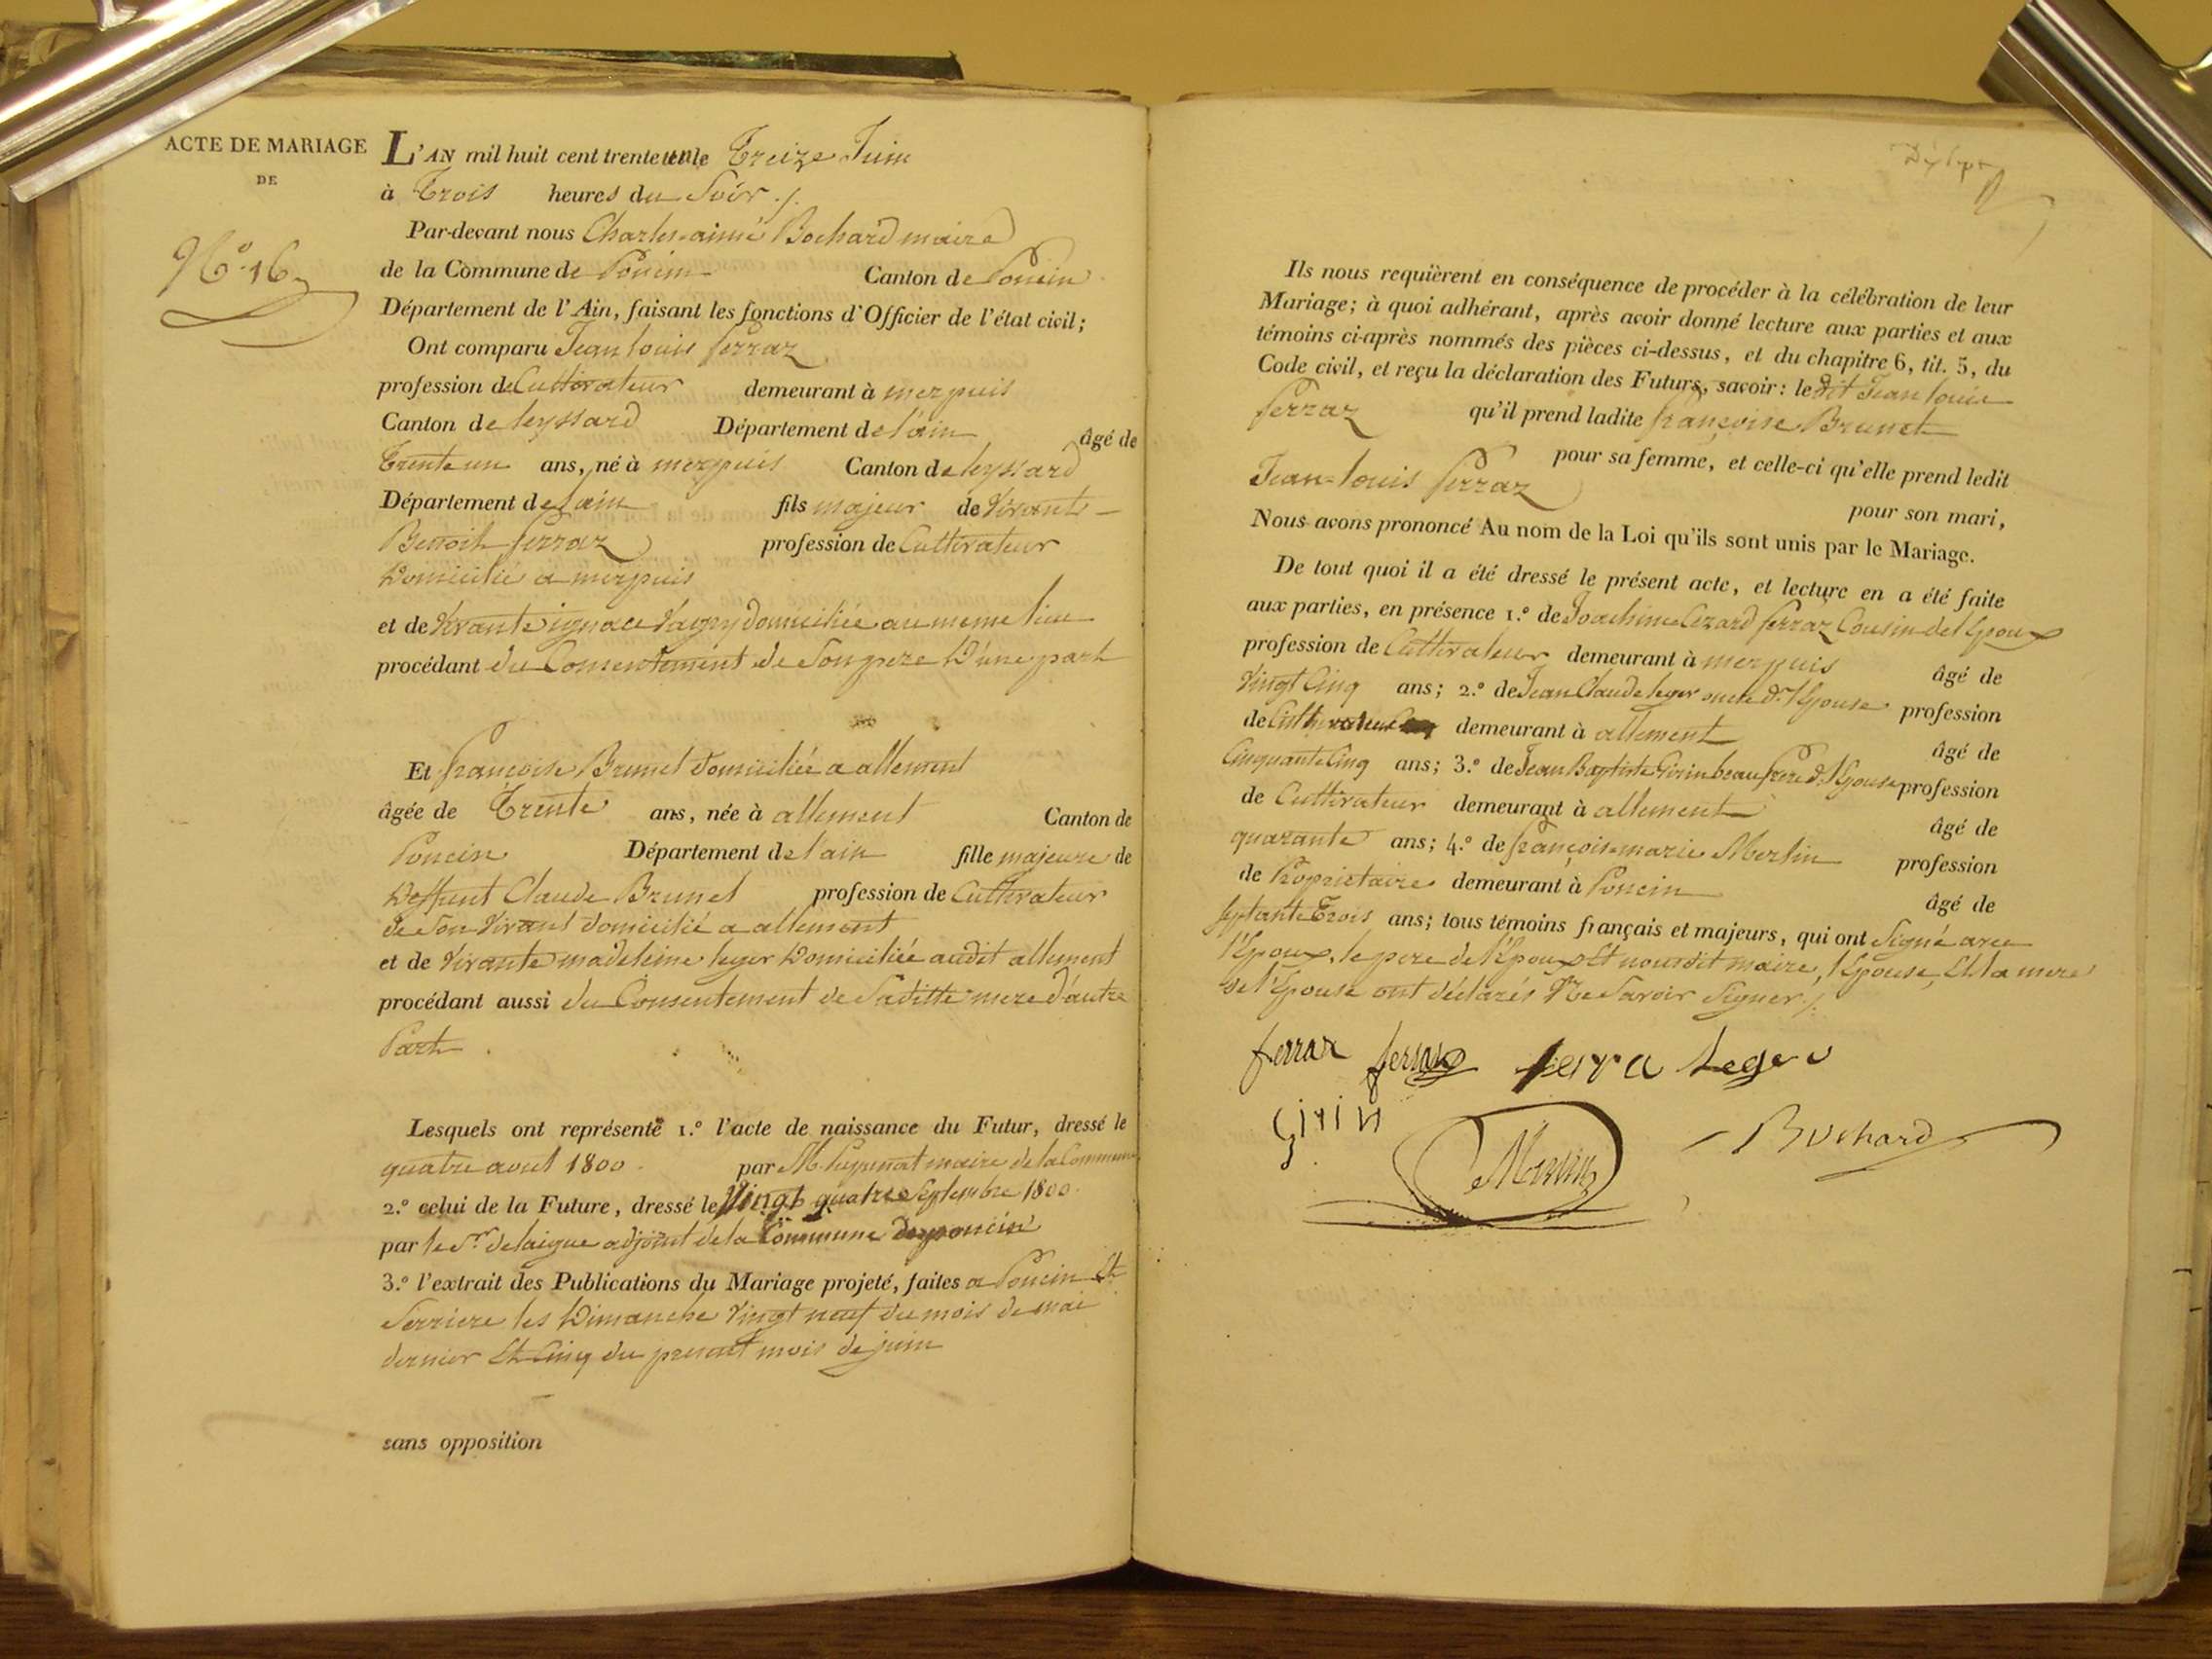 ACTE DE MARIAGE
DE
N.° 16
L'AN mil huit cent trente un le Treize Juin
à Trois heures du Soir ./.
Par-devant nous Charles-aimé Bochard maire
de la Commune de Poncin Canton de Poncin
Département de l'Ain, faisant les fonctions d'Officier de l'état civil;
Ont comparu Jean louis ferraz
profession de Cultivateur demeurant à merpuis
Canton de leyssard Département de l'ain âgé de
Trente un ans, né à merpuis Canton de leyssard
Département de lain fils majeur de Vivants
Benoit ferraz profession de Cultivateur
Domicilié a merpuis
et de Vivante ignace domiciliée au meme lieu
procédant du Consentement de Son pere D'une part
Et françoise Brunet domiciliée a allement
âgée de Trente ans, née à allement Canton de
Poncin Département de l'ain fille majeure de
Deffunt Claude Brunet profession de Cultivateur
de Son Vivant domicilié a allement
et de Vivante madeleine leger Domiciliée audit allement
procédant aussi du Consentement de Saditte mere d'autre
Part .
Lesquels ont représenté 1.° l'acte de naissance du Futur, dressé le
quatre aout 1800 . par M. maire de la Commune
2.° celui de la Future, dressé le Vingt quatre Septembre 1800.
par le Sr. delaigue adjoint de la Commune de poncin
3.° l'extrait des Publications du Mariage projeté, faites a Poncin Et
Serriere les Dimanche Vingt neuf du mois de mai
dernier Et Cinq du present mois de juin
sans opposition
Ils nous requièrent en conséquence de procéder à la célébration de leur
Mariage; à quoi adhérant, après avoir donné lecture aux parties et aux
témoins ci-après nommés des pièces ci-dessus, et du chapitre 6, tit. 5, du
Code civil, et reçu la déclaration des Futurs, savoir: ledit Jean louis
ferraz qu'il prend ladite françoise Brunet
pour sa femme, et celle-ci qu'elle prend ledit
Jean=louis ferraz
pour son mari,
Nous avons prononcé Au nom de la Loi qu'ils sont unis par le Mariage.
De tout quoi il a été dressé le présent acte, et lecture en a été faite
aux parties, en présence 1.° de Joachim Cezard ferraz Cousin del Epoux
profession de Cultivateur demeurant à merpuis âgé de
Vingt Cinq ans; 2.° de Jean Claude leger oncle d. l'Epouse profession
de Cultivateur demeurant à allement âgé de
Cinquante Cinq ans; 3.° de Jean Baptiste Girin beau frere d. l'Epouse profession
de Cultivateur demeurant à allement âgé de
quarante ans; 4.° de françois-marie Merlin profession
de Propriétaire demeurant à Poncin âgé de
Septante Trois ans; tous témoins français et majeurs, qui ont Signé avec
l'Epoux, le pere de l'Epoux Et nousdit maire, l'Epouse, Et la mere
de l'Epouse ont déclarés Ne Savoir Signer ./.
ferraz ferraz ferra Leger
Girin
Merlin
Bochard